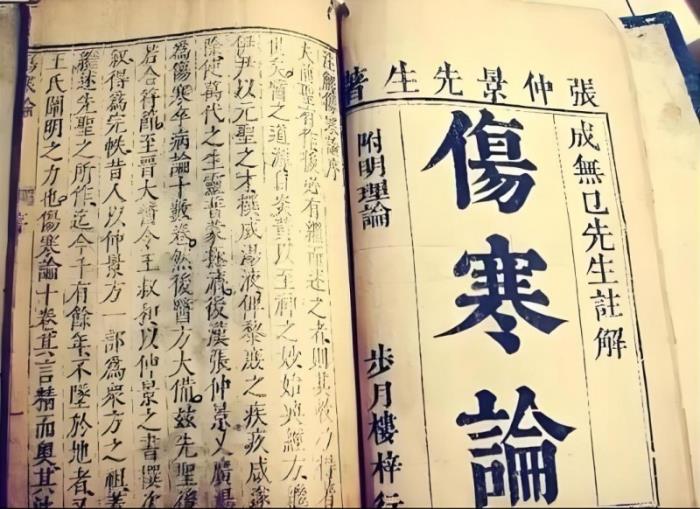 張仲景先生著
成無已先生註解
傷寒論
附明理論
步月樓梓行
註解傷寒論序
夫前聖有作後必有繼而述之者則其教乃得著
於世矣醫之道源自炎黃以至神之妙始興經方繼
伊尹以元聖之才撰成湯液俾黎庶之疾疢咸遂
除使萬代之生靈普蒙拯濟後漢張仲景又廣湯
為傷寒卒病論十數卷然後醫方大備茲先聖後
若合符節至晉大醫令王叔和以仲景之書撰次
叙得為完帙昔人以仲景方一部為衆方之祖蓋
繼述先聖之所作迄今千有餘年不墜於地者又
王氏闡明之力也傷寒論十卷其言精而奧其法
傷寒論